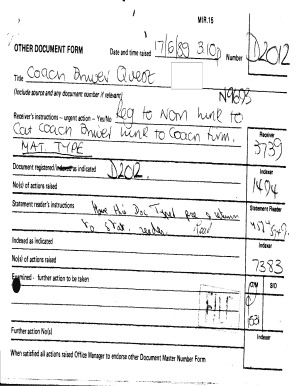 MIR.15
OTHER DOCUMENT FORM
Date and time raised 17/6/89 3.10p
Number D2012
Title Coach Driver Quest
(Include source and any document number if relevant)
N9653
Receiver's instructions – urgent action – Yes/No
Reg to Nom link to
Cat Coach Driver link to Coach Firm.
MAT. TYPE
Receiver
3739
Document registered/indexed as indicated D2012.
Indexer
1494
No(s) of actions raised
Statement reader's instructions
Have this Doc Typed pse & return
to Stat. reader.
Statement Reader
Indexed as indicated
Indexer
No(s) of actions raised
7383
Examined – further action to be taken
O/M
SIO
Further action No(s)
Indexer
When satisfied all actions raised Office Manager to endorse other Document Master Number Form